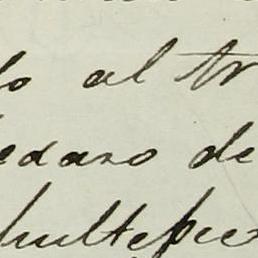 lo al tr
edazo de
hultepec